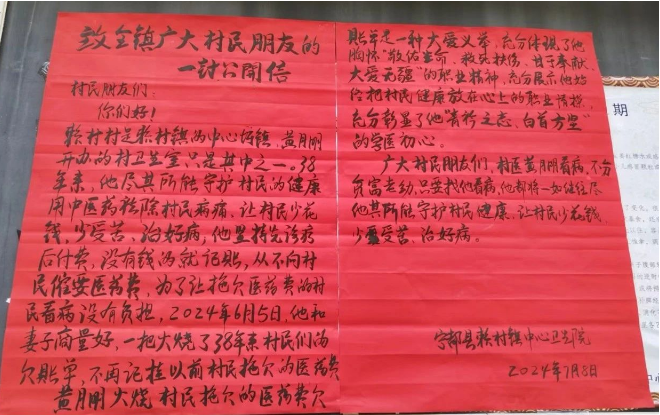 致全镇广大村民朋友的
一封公開信
村民朋友们:
你们好!
赖村村是赖村镇的中心圩镇,黄月明
开办的村卫生室只是其中之一。38
年来,他尽其所能守护村民的健康
用中医药祛除村民病痛、让村民少花
钱,少受苦、治好病,他坚持先诊病
后付费,没有钱的就记账,从不向村
民催要医药费,为了让拖欠医药费的村
民看病没有负担,2024年6月5日,他和
妻子商量好,一把火烧了38年来村民们的
欠账单,不再记挂以前村民拖欠的医药费
黄月明火烧村民拖欠的医药费欠
账单是一种大爱义举,充分体现了他
胸怀"敬佑生命、救死扶伤、甘于奉献、
大爱无疆"的职业精神,充分展示他始
终把村民健康放在心上的职业情操,
充分彰显了他"青衿之志、白首方坚"
的学医初心。
广大村民朋友们,村医黄月明看病,不分
贫富老幼,只要找他看病,他都将一如继往尽
他其所能守护村民健康、让村民少花钱、
少受苦、治好病。
宁都县赖村镇中心卫生院
2024年7月8日
期